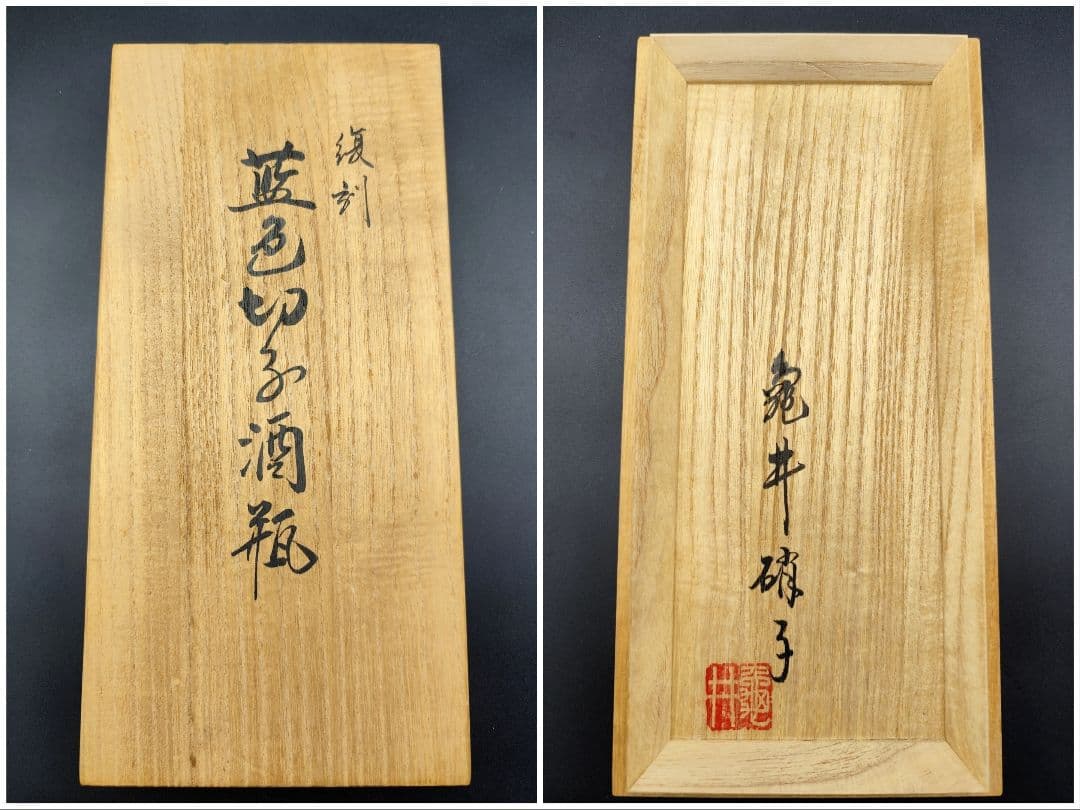 復刻
藍色切子酒瓶
亀井硝子